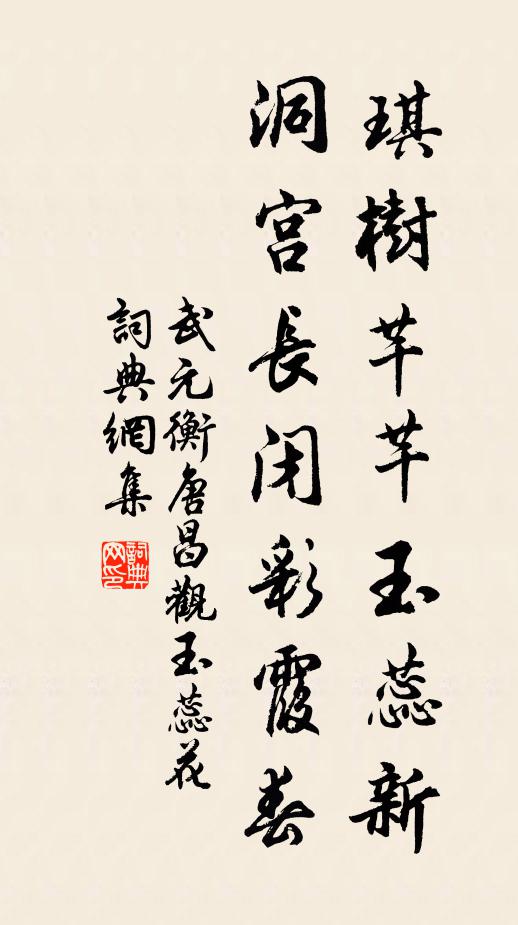 琪樹芊芊玉蕊新
洞宮長閉彩霞春
武元衡唐昌觀玉蕊花
詞典網集
詞典网印